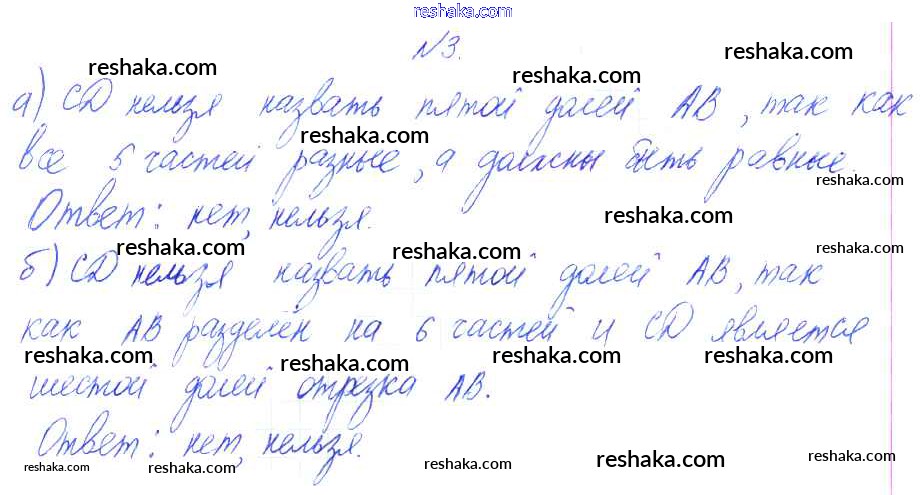 reshaka.com
№3.
reshaka.com
reshaka.com
а) CD нельзя назвать пятой долей AB, так как
reshaka.com
все 5 частей разные, а должны быть равные.
reshaka.com
Ответ: нет, нельзя.
reshaka.com
reshaka.com
reshaka.com
reshaka.com
б) CD нельзя назвать пятой долей AB, так
как AB разделён на 6 частей и CD является
reshaka.com
reshaka.com
reshaka.com
reshaka.com
шестой долей отрезка AB.
Ответ: нет, нельзя.
reshaka.com
reshaka.com
reshaka.com
reshaka.com
reshaka.com